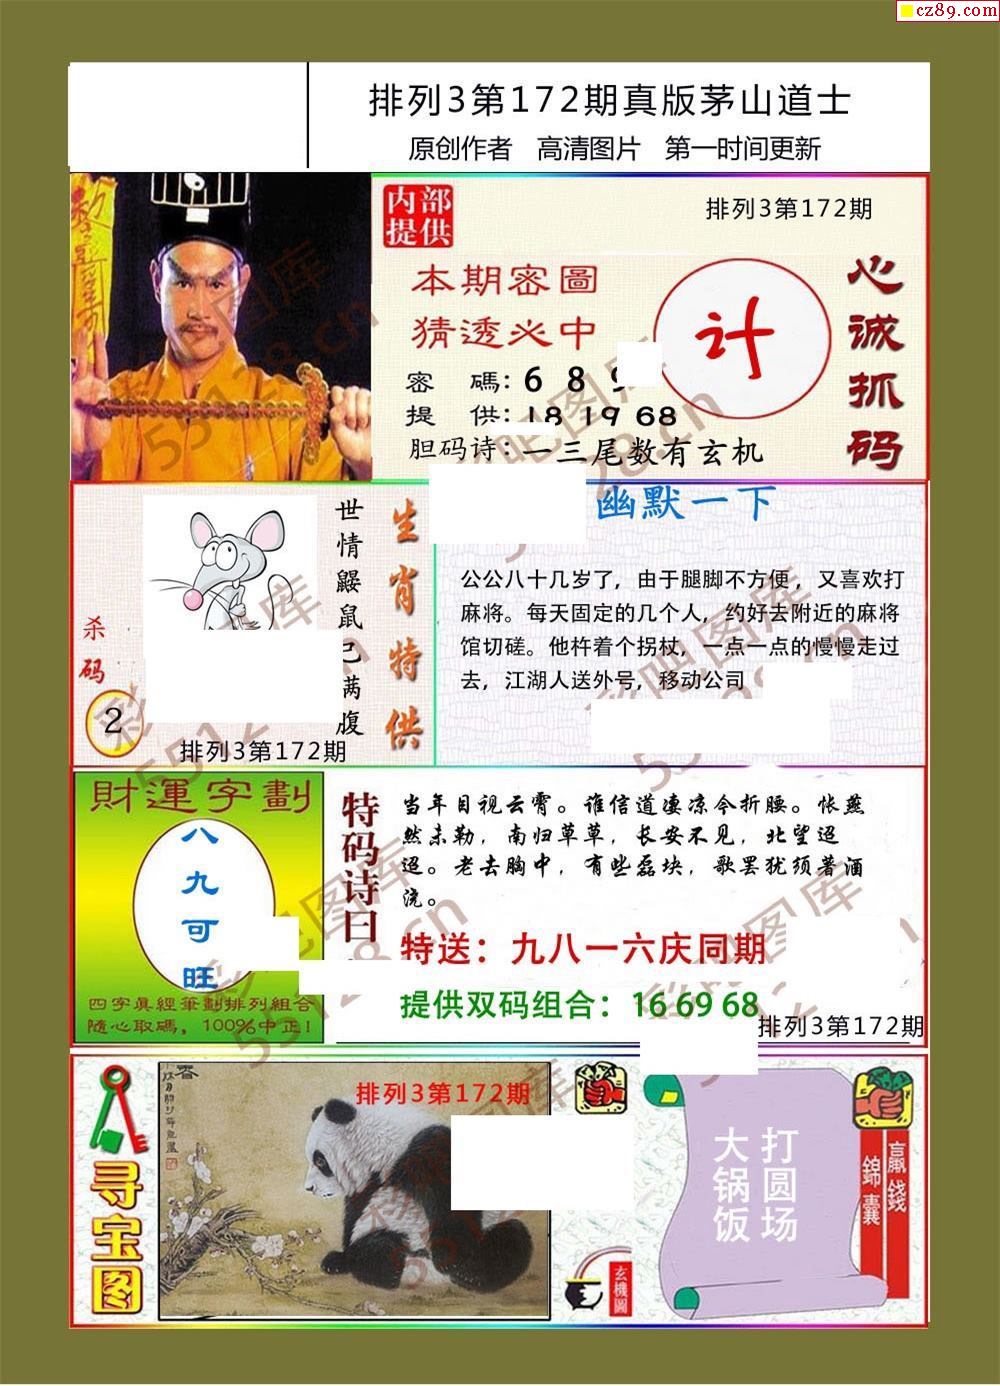 cz89.com
排列3第172期真版茅山道士
原创作者 高清图片 第一时间更新
内部
提供
排列3第172期
本期密圖
猜透必中
计
心诚抓码
密 碼: 6 8 9
提 供: 18 19 68
胆码诗: 一三尾数有玄机
幽默一下
公公八十几岁了，由于腿脚不方便，又喜欢打
麻将。每天固定的几个人，约好去附近的麻将
馆切磋。他杵着个拐杖，一点一点的慢慢走过
去，江湖人送外号，移动公司
杀码
2
世情鼹鼠已满腹
生肖特供
排列3第172期
財運字劃
八九可旺
四字眞經筆劃排列組合
隨心取碼，100%中正!
特码诗曰
当年目视云霄。谁信道凄凉今折腰。怅燕
然未勒，南归草草，长安不见，北望迢
迢。老去胸中，有些磊块，歌罢犹须著酒
浇。
特送：九八一六庆同期
提供双码组合：16 69 68
排列3第172期
寻宝图
排列3第172期
玄機圖
打圆场
大锅饭
贏錢
錦囊
彩吧图库
55128.cn